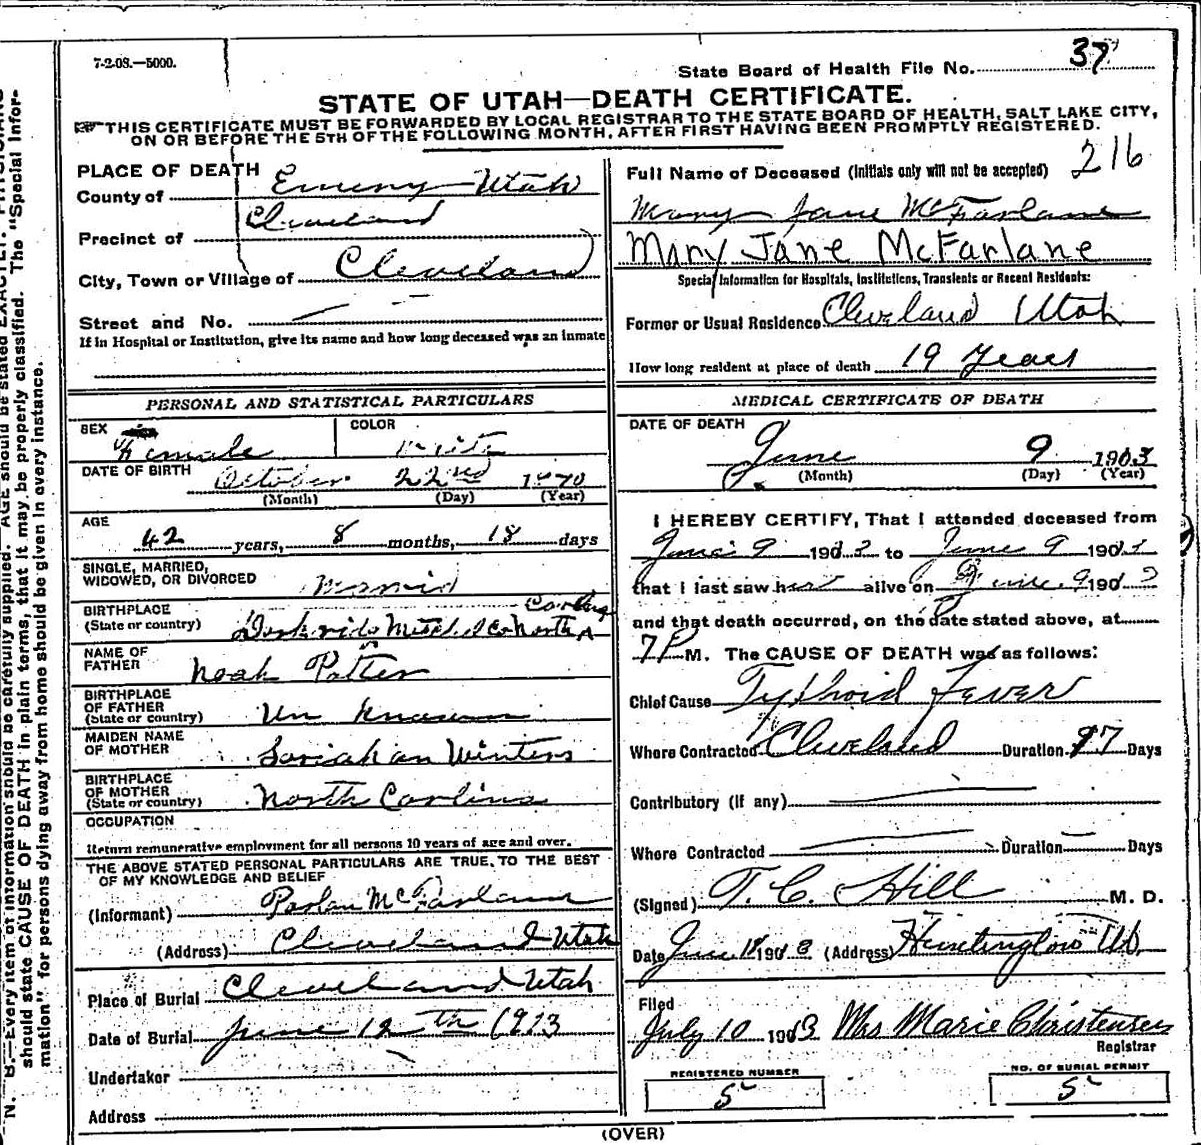 7-2-08.—5000.
State Board of Health File No. 37
STATE OF UTAH—DEATH CERTIFICATE.
THIS CERTIFICATE MUST BE FORWARDED BY LOCAL REGISTRAR TO THE STATE BOARD OF HEALTH, SALT LAKE CITY,
ON OR BEFORE THE 5TH OF THE FOLLOWING MONTH, AFTER FIRST HAVING BEEN PROMPTLY REGISTERED.
216
PLACE OF DEATH
County of Emery Utah
Precinct of Cleveland
City, Town or Village of Cleveland
Street and No. —
If in Hospital or Institution, give its name and how long deceased was an inmate
Full Name of Deceased (Initials only will not be accepted)
Mary Jane McFarlane
Mary Jane McFarlane
Special Information for Hospitals, Institutions, Transients or Recent Residents:
Former or Usual Residence Cleveland Utah
How long resident at place of death 19 Years
PERSONAL AND STATISTICAL PARTICULARS
SEX Female
COLOR White
DATE OF BIRTH October 22nd 1870
(Month) (Day) (Year)
AGE
42 years, 8 months, 18 days
SINGLE, MARRIED,
WIDOWED, OR DIVORCED Married
BIRTHPLACE
(State or country) North Carolina
NAME OF
FATHER Noah Potter
BIRTHPLACE
OF FATHER
(State or country) Un known
MAIDEN NAME
OF MOTHER Soriah an Winters
BIRTHPLACE
OF MOTHER
(State or country) North Carlina
OCCUPATION
Return remunerative employment for all persons 10 years of age and over.
THE ABOVE STATED PERSONAL PARTICULARS ARE TRUE, TO THE BEST
OF MY KNOWLEDGE AND BELIEF
(Informant) McFarlane
(Address) Cleveland Utah
Place of Burial Cleveland Utah
Date of Burial June 12th 1913
Undertaker
Address
MEDICAL CERTIFICATE OF DEATH
DATE OF DEATH
June 9 1903
(Month) (Day) (Year)
I HEREBY CERTIFY, That I attended deceased from
June 9 190 to June 9 190
that I last saw her alive on June 9 190
and that death occurred, on the date stated above, at
7P M. The CAUSE OF DEATH was as follows:
Chief Cause Typhoid Fever
Where Contracted Cleveland Duration 17 Days
Contributory (if any)
Where Contracted Duration — Days
(Signed) T. C. Hill M. D.
Date June 18 190 (Address) Huntington Ut.
Filed
July 10 1903 Mrs Marie Christensen
Registrar
REGISTERED NUMBER
5
NO. OF BURIAL PERMIT
5
(OVER)
N. B.—Every item of information should be carefully supplied. AGE should be stated EXACTLY.
should state CAUSE OF DEATH in plain terms, that it may be properly classified. The "Special Infor-
mation" for persons dying away from home should be given in every instance.